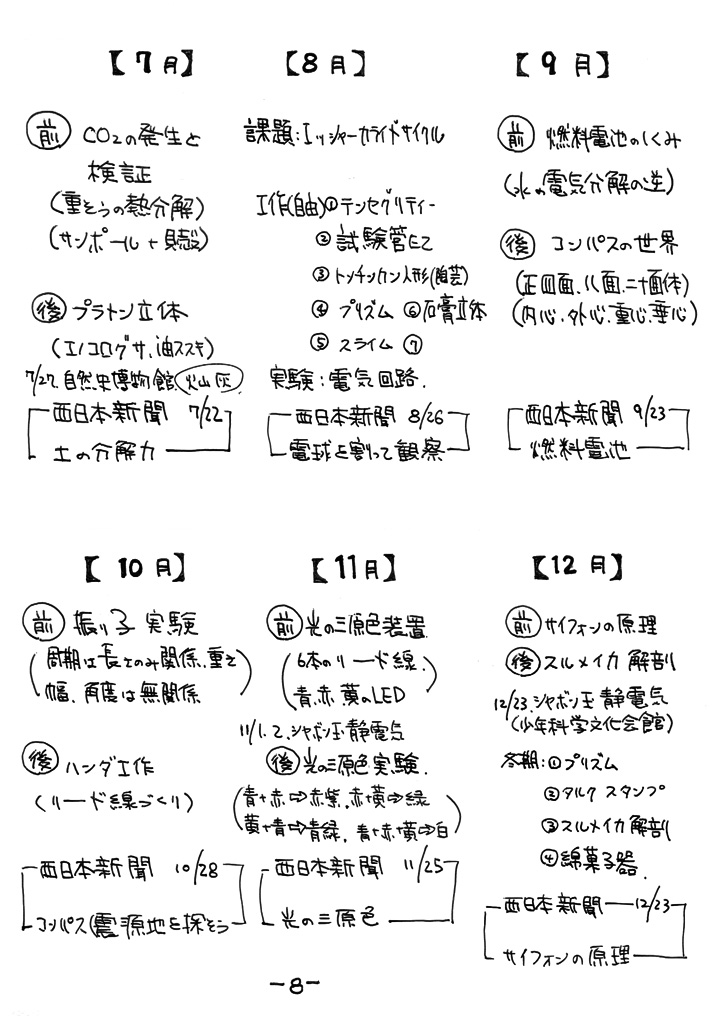 【7月】
前 CO2の発生と
検証
(重そうの熱分解)
(サンポール+貝殻)
後 プラトン立体
(エノコログサ、油ススキ)
7/27.自然史博物館 火山灰
西日本新聞 7/22
土の分解力
【8月】
課題:エッシャーカライドサイクル
工作(自由)①テンセグリティー
②試験管エコ
③トンチンカン人形(陶芸)
④ プリズム ⑥石膏立体
⑤ スライム ⑦
実験:電気回路.
西日本新聞 8/26
電球を割って観察
【9月】
前 燃料電池のしくみ
(水の電気分解の逆)
後 コンパスの世界
(正四面、八面、二十面体)
(内心、外心、重心、垂心)
西日本新聞 9/23
燃料電池
【10月】
前 振り子実験
(周期は長さのみ関係、重さ
幅、角度は無関係)
後 ハンダ工作
(リード線づくり)
西日本新聞 10/28
コンパス(震源地を探そう
【11月】
前 光の三原色装置
(6本のリード線、
青、赤、黄のLED)
11/1.2.シャボン玉静電気
後 光の三原色実験.
(青+赤⇨赤紫、赤+黄⇨緑
黄+青⇨青緑、青+赤+黄⇨白)
西日本新聞 11/25
光の三原色
【12月】
前 サイフォンの原理
後 スルメイカ解剖
12/23.シャボン玉 静電気
(少年科学文化会館)
冬期:①プリズム
②タルク スタンプ
③スルメイカ解剖
④綿菓子器.
西日本新聞 12/23
サイフォンの原理
-8-